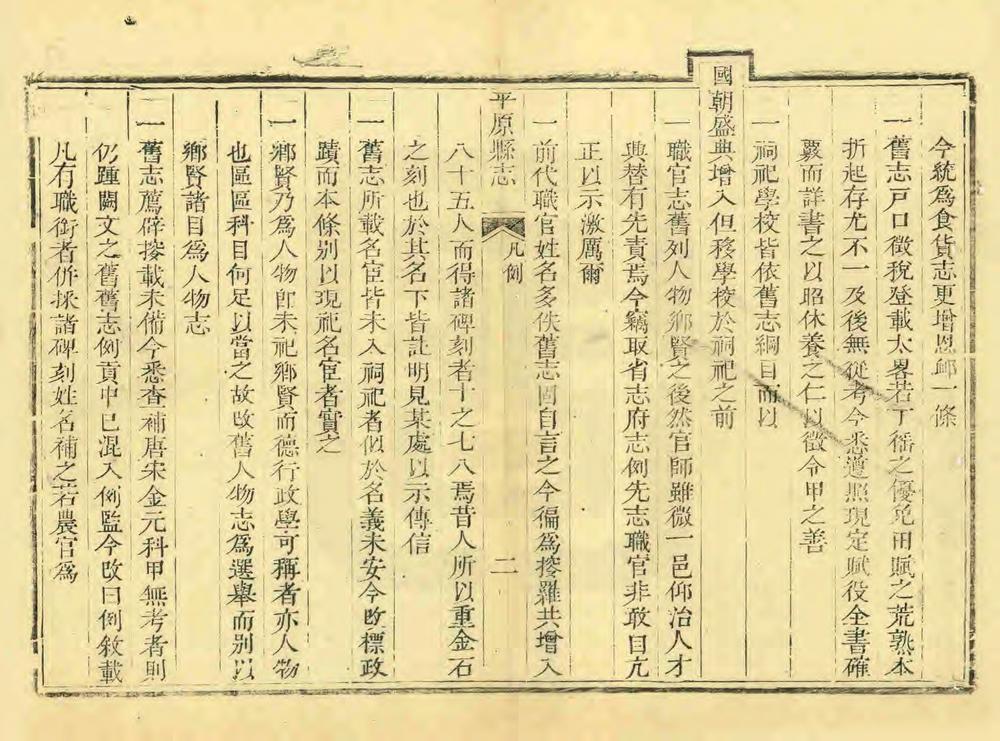 今統爲食貨志更增恩䘏一條
一舊志戸口徵稅登載大畧若丁徭之優免田賦之荒熟本
折起存尤不一及後無從考今悉遵照現定賦役全書確
覈而詳書之以昭休養之仁以徵令甲之善
一祠祀學校皆依舊志綱目而以
國朝盛典增入但移學校於祠祀之前
一職官志舊列人物鄉賢之後然官師雖微一邑仰治人才
典替有先責焉今竊取省志府志例先志職官非敢自亢
正以示激厲爾
一前代職官姓名多佚舊志固自言之今徧爲搜羅共增入
平原縣志 凡例 二
八十五人而得諸碑刻者十之七八焉昔人所以重金石
之刻也於其名下皆註明見某處以示傳信
一舊志所載名臣皆未入祠祀者似於名義未安今改標政
蹟而本條别以現祀名臣者實之
一鄉賢乃爲人物卽未祀鄉賢而德行政學可稱者亦人物
也區區科目何足以當之故改舊人物志爲選舉而别以
鄉賢諸目爲人物志
一舊志薦辟搜載未備今悉查補唐宋金元科甲無考者則
仍踵闕文之舊舊志例貢中已混入例監今改曰例敘載
凡有職銜者併採諸碑刻姓名補之若農官爲